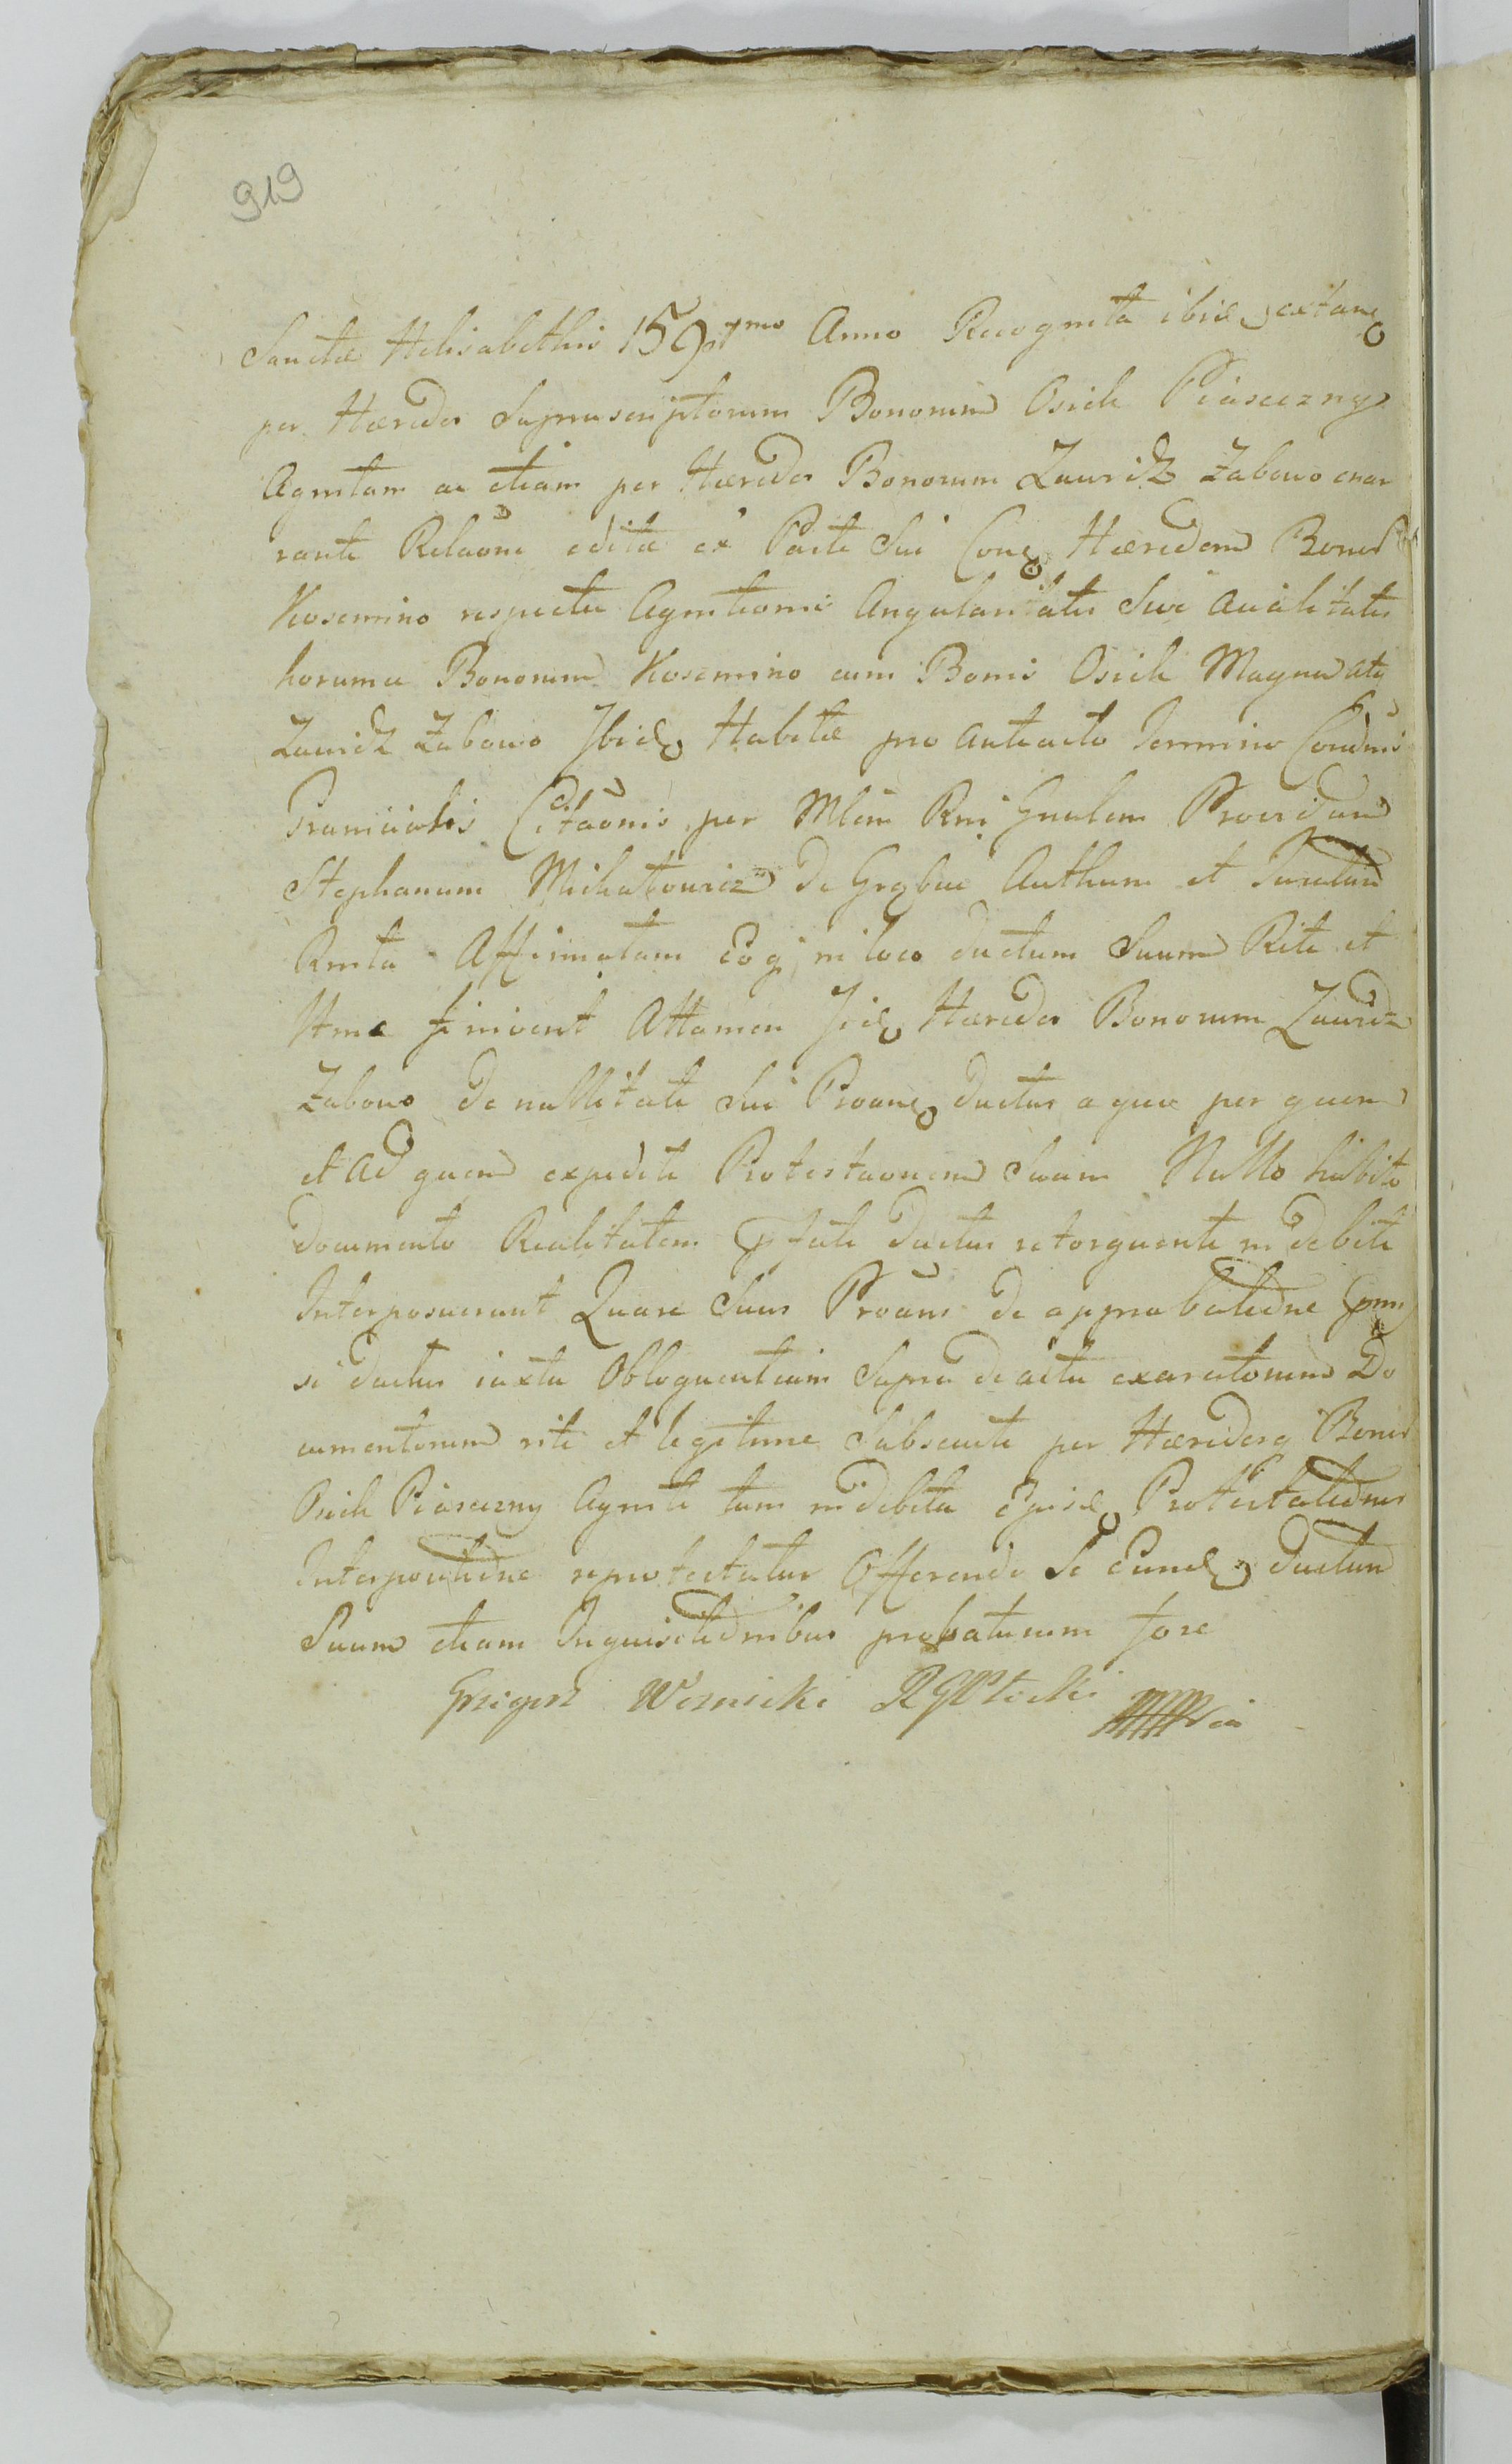 919
Sanctæ Helisabethis 1597mo Anno Recognita ibid extan
per Hæredes Suprascriptorum Bonorum Osiek Piaseczny
Agnitam ac etiam per Hæredes Bonorum Zawidz Zabowo enar
rante Relaõne edita ex Parte Sui Hæredem Bonor
Kosemino respectu Agnitionis Angularitatis Sive Acialitatis
horumce Bonorum Kosemino cum Bonis Osiek Magna atq
Zawidz Zabowo Ibid Habitæ pro anteacto Termino Condnis
Granicialis Citaõnis per Mlem Rni Gnalem Providum
Stephanum Michałowicz de Authum et Juratum
Rnita Affirmatam eoq in loco ductum Suum Rite et
finivent Attamen Iid Hæredes Bonorum Zawidz
Zabowo de nullitate Sui ductus a quo per quem
et ad quem expedite Protestaonem Suam Nullo habito
documento Realitatem ductus retorquente indebite
Interposuerunt Quare Suus de approbatione
si ductus iuxta Obloquentiam Supra de actu exaratorum Do
cumentorum rite et legitime Subsecuti per Hæredesq Bonor
Osiek Piaseczny Agniti tum indebita ejusd Protestationis
Interpositione reprotestatur Offerendo Se Eund ductum
Suum etiam Inquisitionibus probaturum fore
Grzegorz Wisnicki RGPłocki